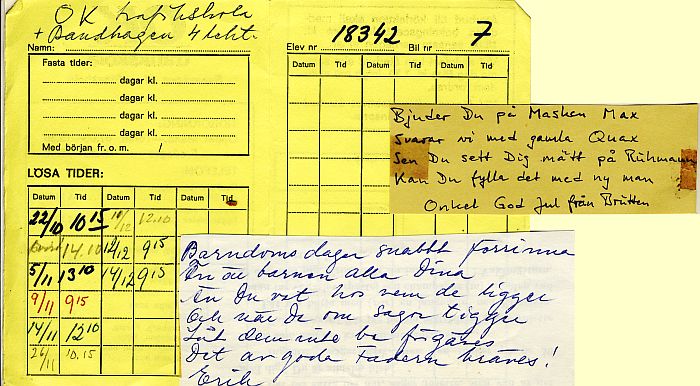 OK Trafikskola
+ Bandhagen 4 lekt.
Namn:
Elev nr 18342 Bil nr 7
Fasta tider:
dagar kl.
dagar kl.
dagar kl.
dagar kl.
Med början fr. o. m. /
LÖSA TIDER:
Datum Tid Datum Tid Datum Tid
22/10 10 15 10/12 12.10
14.10 12/12 9 15
5/11 13 10 14/12 9 15
9/11 9 15
14/11 12 10
26/11 10.15
Datum Tid Datum Tid Datum Tid
Bjuder Du på Masken Max
Svarar vi med gamla Quax
Sen Du sett Dig mätt på Rühmann
Kan Du fylla det med ny man
Onkel God Jul från Brütten
Barndoms dagar snabbt förrinna
Än äro barnen alla Dina
Än Du vet hos vem de ligger
Och när De om sagor tigger
Låt dem inte be förgäves
Det av goda fadern kräves!
Erik